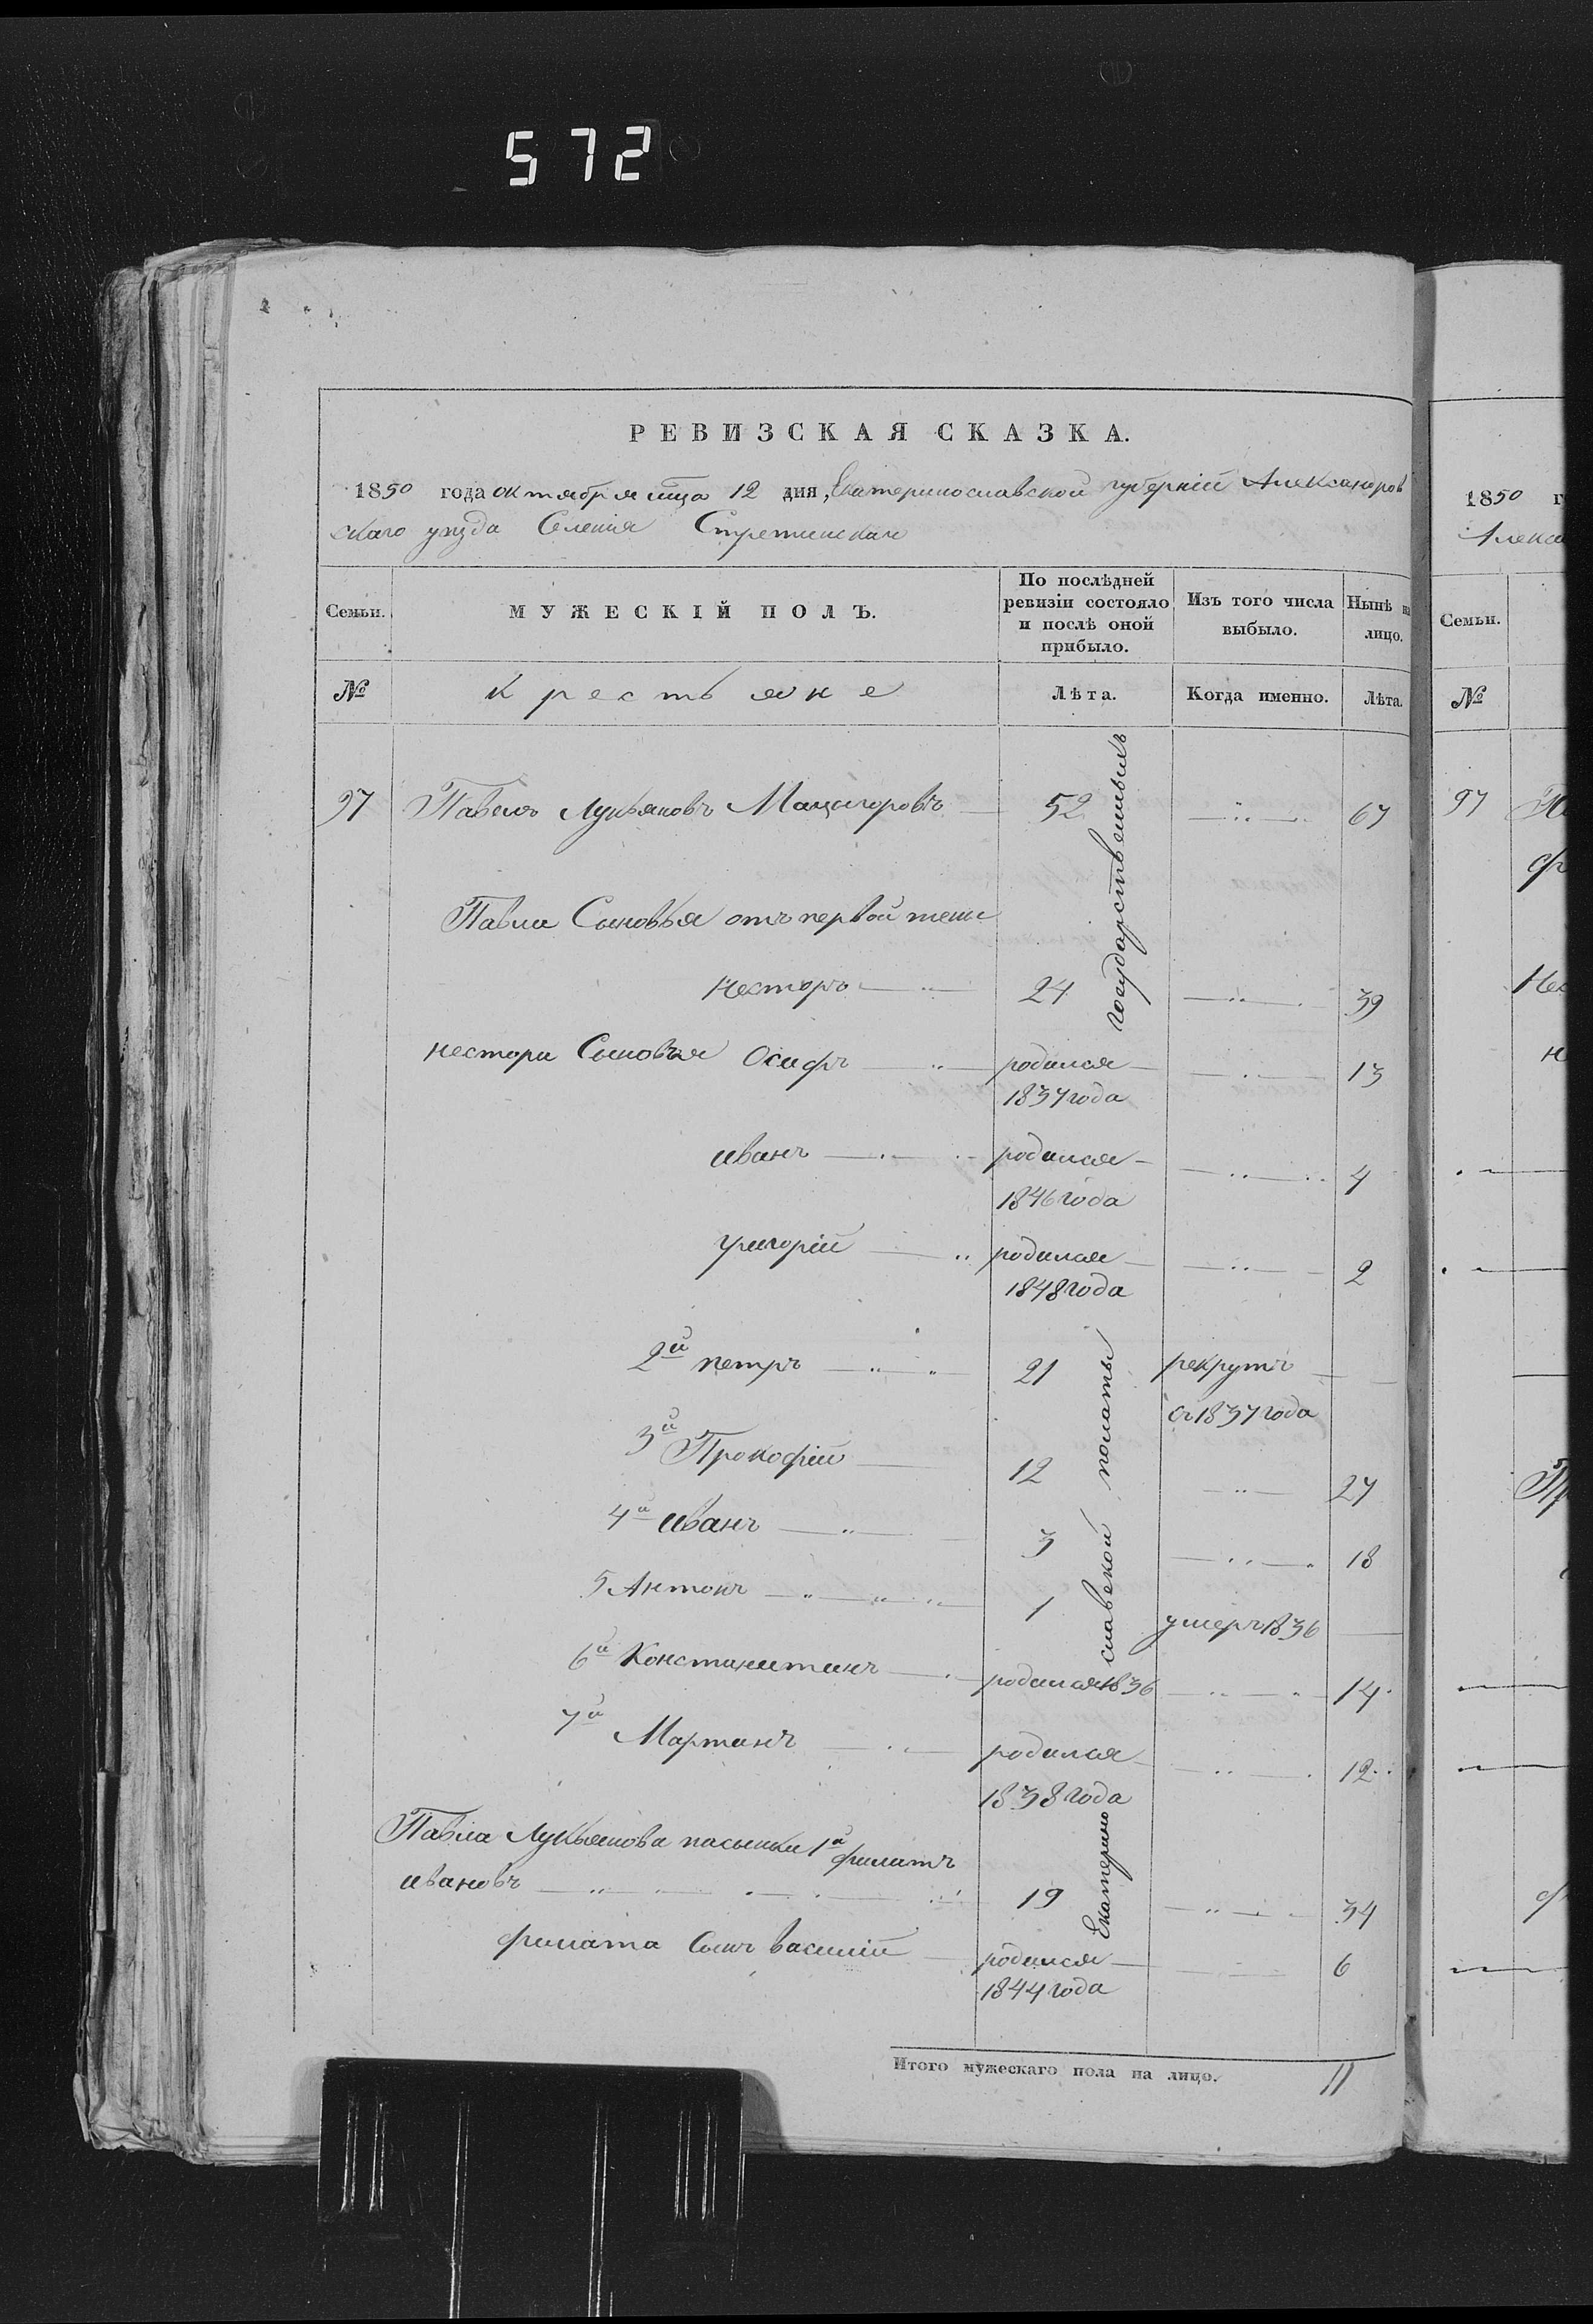 572
РЕВИЗСКАЯ СКАЗКА.
1850 года октября мца 12 дня, Екатеринославской губернiи Александров
скаго уезда Селенiя Стретинскаго
Семьи. МУЖЕСКIЙ ПОЛЪ. По послѣдней ревизiи состояло и послѣ оной прибыло. Изъ того числа выбыло. Нынѣ на лицо.
№ крестьяне Лѣта. Когда именно. Лѣта.
97 Павелъ Лукьяновъ Мацегоровъ 52 67
Павла Сыновья отъ первой жены
несторъ 24 39
нестора Сыновья Осифъ родился 13
1837 года
иванъ родился 4
1846 года
григорiй родился 2
1848 года
2й петръ 21 рекрутъ
съ 1837 года
3й Прокофiй 12 27
4й иванъ 3 18
5 Антонъ 1 умеръ 1836
6й Константинъ родился 1836 14
7й Мартинъ родился 12
1838 года
Павла Лукьянова пасынки 1й филатъ
ивановъ 19 34
филата Сынъ василiй родился 6
1844 года
Екатерино славской полаты государственныхъ
Итого мужескаго пола на лицо. 11
1850 г
Алекса
Семьи.
№
97
Нес